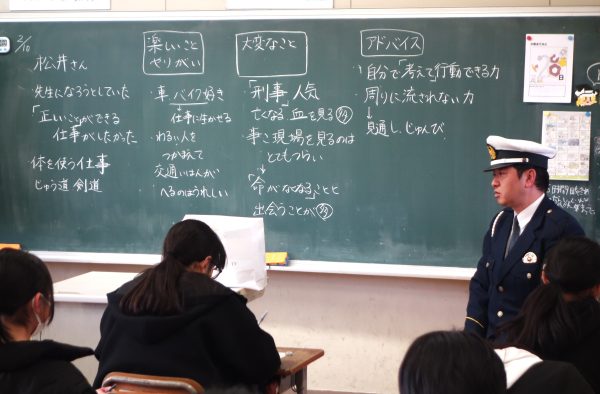 2/10
松井さん
先生になろうとしていた
「正しいことができる
仕事がしたかった
体を使う仕事
じゅう道 剣道
楽しいこと
やりがい
・車、バイク好き
仕事に生かせる
・わるい人を
つかまえて
交通いはんが
へるのはうれしい
大変なこと
・「刑事」人気
亡くなる 血を見る
・事こ現場を見るのは
とてもつらい
「命がなくなる」ことと
出会うことが
アドバイス
・自分で「考えて行動できる力
・周りに流されない力
見通し、じゅんび